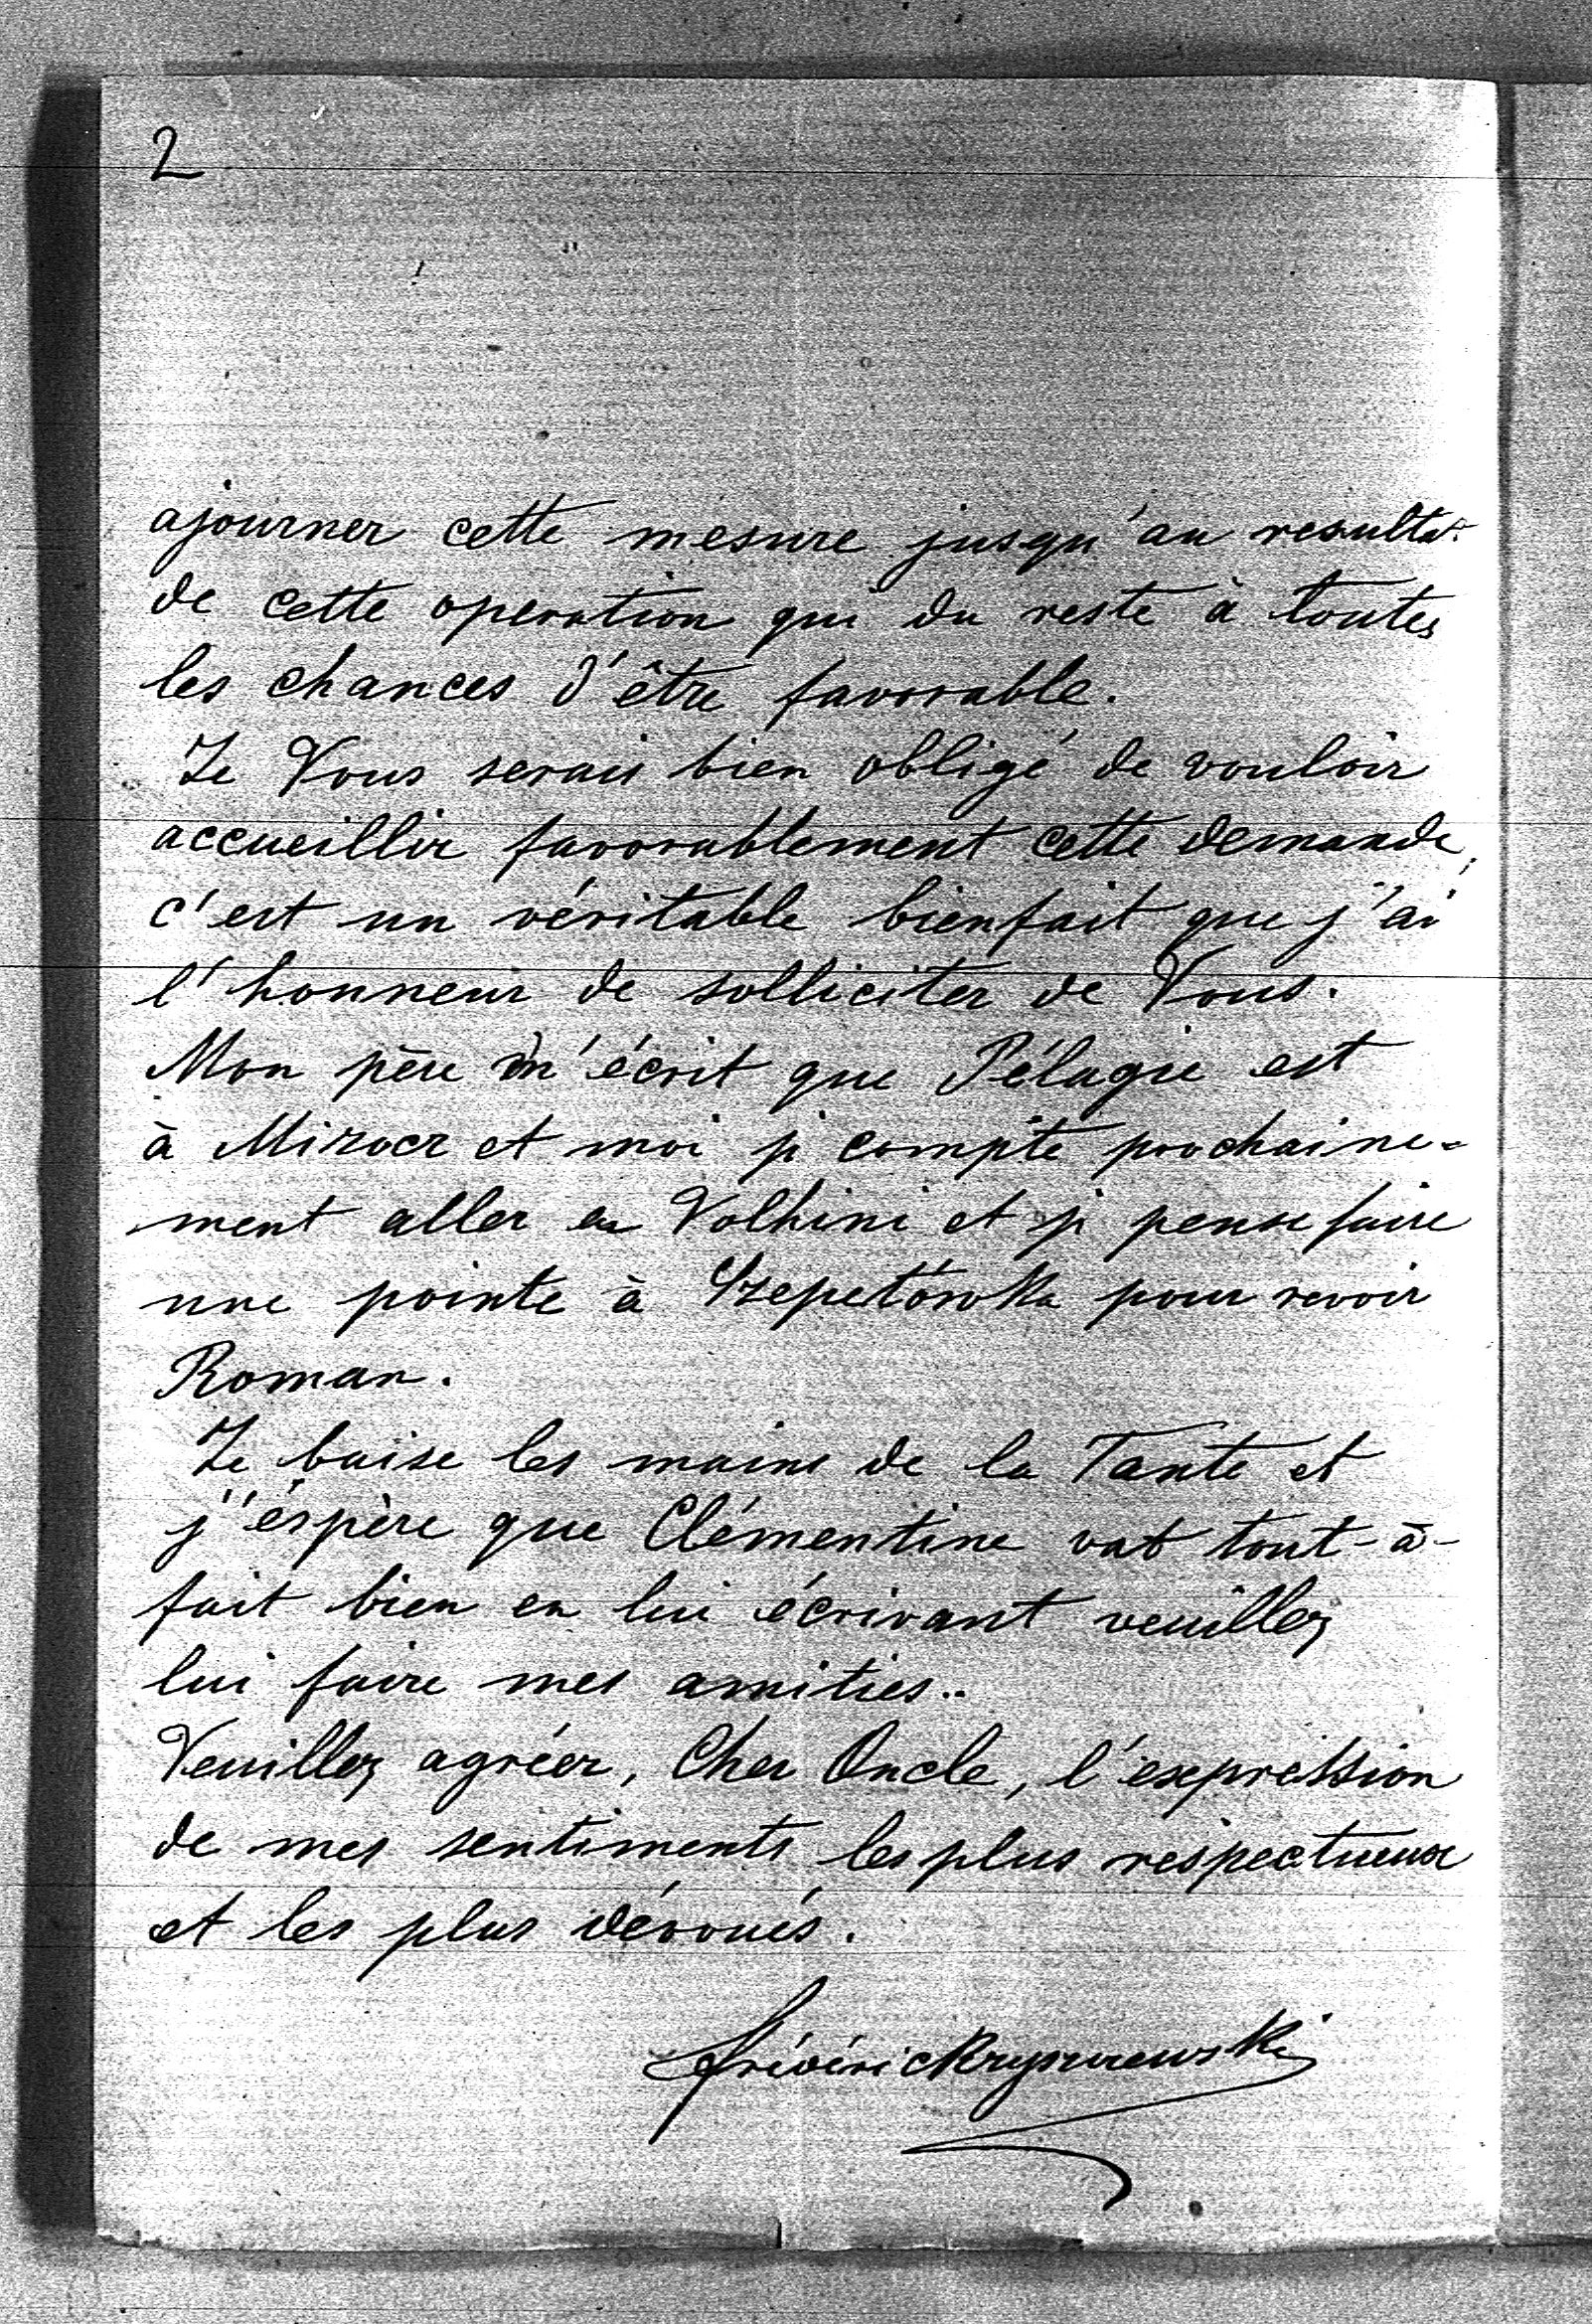 2
ajourner cette mesure jusqu'au resultat
de cette operation qui du reste à toutes
les chances d'être favorable.
Je Vous serais bien obligé de vouloir
accueillir favorablement cette demande,
c'est un véritable bienfait que j'ai
l'honneur de solliciter de Vous.
Mon père m'écrit que Pélagie est
à Mizocz et moi je compte prochaine-
ment aller en Volhini et je pense faire
une pointe à Szepetówka pour revoir
Roman.
Je baise les mains de la Tante et
j'éspère que Clémentine vat tout-à-
fait bien en lui écrivant veuillez
lui faire mes amitiés..
Veuillez agréer, Cher Oncle, l'expression
de mes sentiments les plus respectueux
et les plus dévoués.
Frédéric